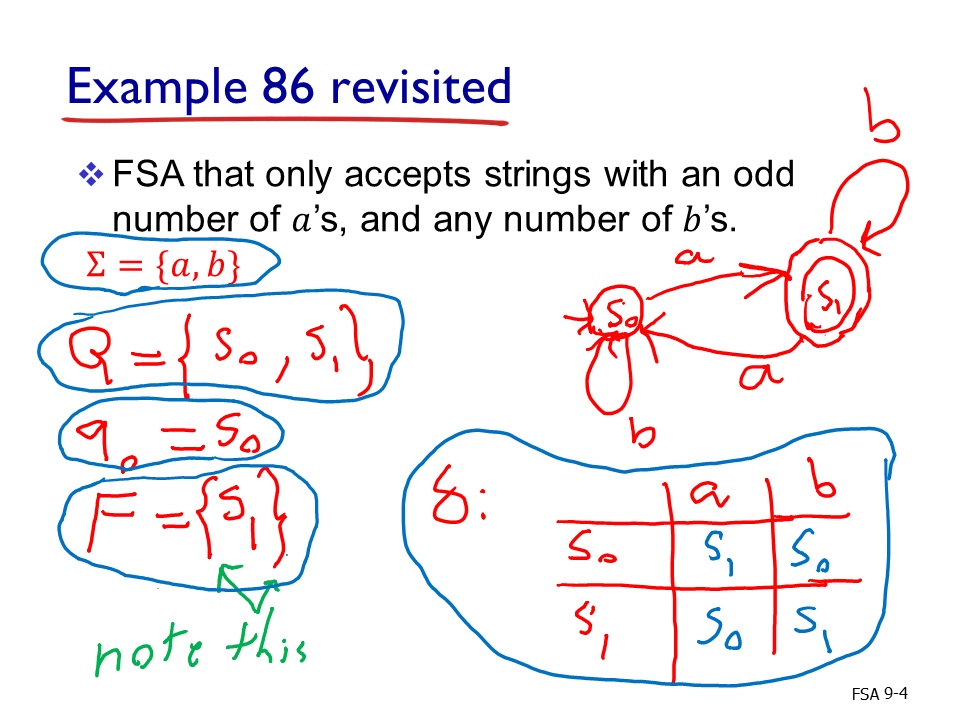 Example 86 revisited
FSA that only accepts strings with an odd
number of 𝑎's, and any number of 𝑏's.
Σ = {𝑎, 𝑏}
Q = {S₀, S₁}
q₀ = S₀
F = {S₁}
note this
b
a
S₁
S₀
a
b
δ:
a b
S₀ S₁ S₀
S₁ S₀ S₁
FSA 9-4